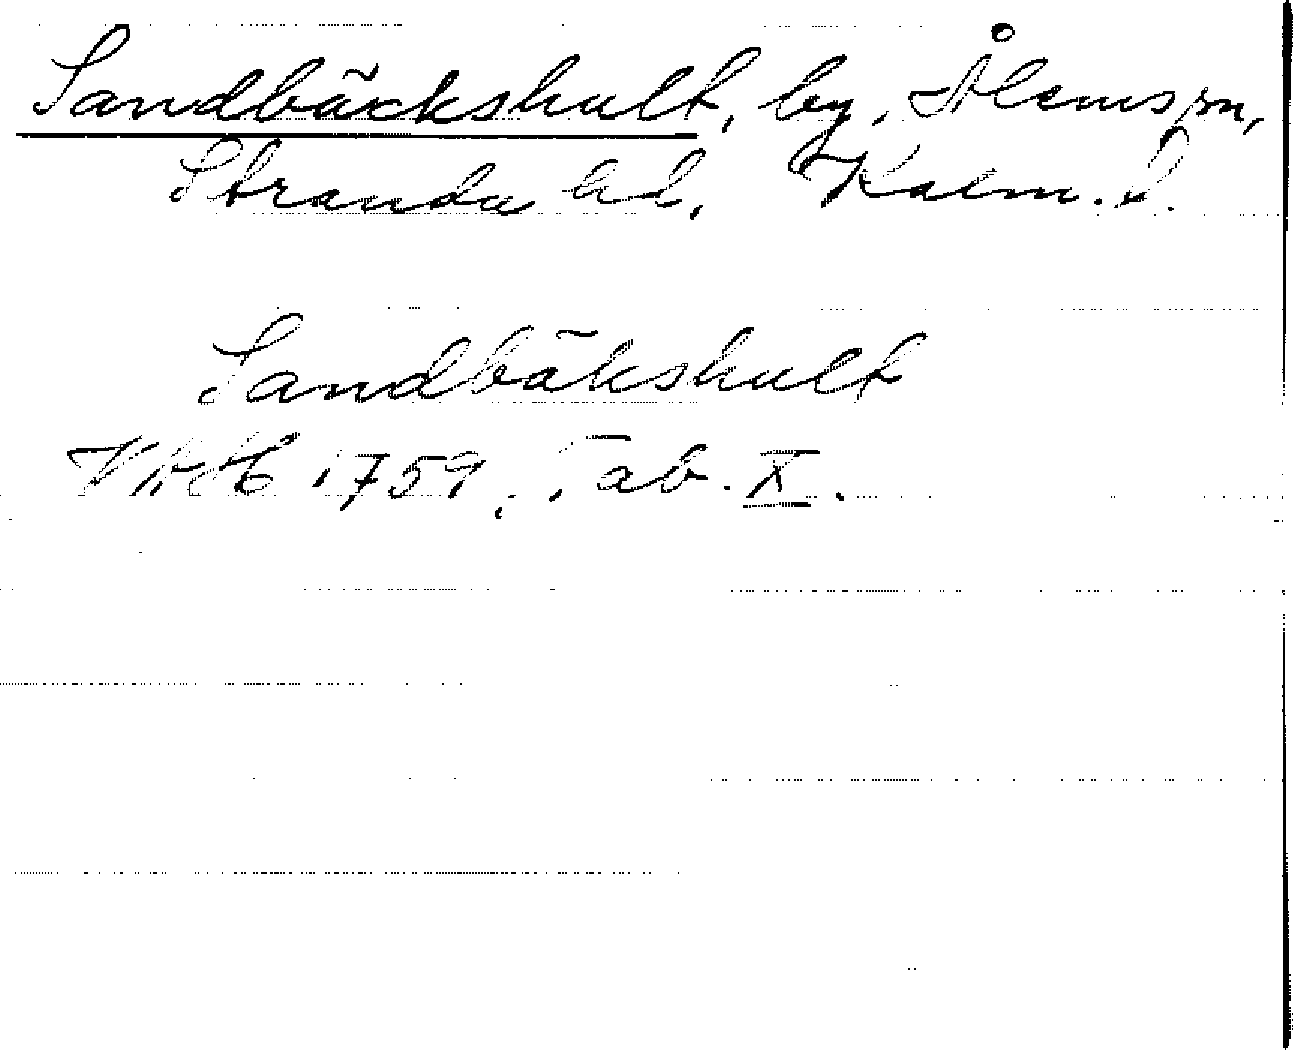 Sandbäckshult, by, Ålems sn,
Stranda hd, Kalm. l.
Sandbäkshult
VAH 1759, Tab. X.